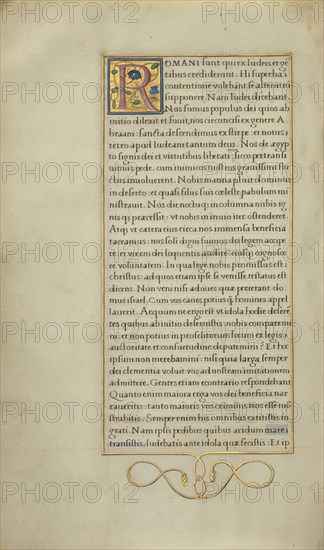 ROMANI sunt qui ex Iudeis et gē
tibus crediderunt. Hi superba
contentione volebant se alterutri
supponere. Nam Iudei dicebant.
Nos sumus populus dei quos ab
initio dilexit et fouit, nos circuncisi ex genere A
braam: sancta descendimus ex stirpe: et notus i
retro apud Iudeam tantum deus. Nos de ægypto
signis dei et virtutibus liberati
pede. cum inimicos nostros
inuoluerent. Nobis manna pluit dominus
in deserto: et quasi filiis suis cœleste pabulum mi
nistrauit. Nos die noctuque in columna nubis ig
nisque præcessit: vt nobis in inuio iter ostenderet.
Atque vt cætera eius circa nos immensa beneficia
taceamus: nos soli digni sumus dei legem accipe
re: et vocem dei loquentis audire: eiusque cognoscere
voluntatem: In qua lege nobis promissus est
christus: ad quos etiam ipse se venisse testatus est
dicens. Non veni nisi ad oues quæ perierant do
mus israel. Cum vos canes potius que homines appel
lauerit. Aequum ne ergo est vt idola hodie deserē
tes quibus ab initio deseruistis: nobis comparemi
ni: et non potius in proselitorum locum ex legis
auctoritate et consuetudine deputemini? Et hoc
ipsum non merebamini: nisi quia larga semper
dei clementia voluit vos ad nostram imitationem
admittere. Gentes etiam econtrario respondebant
Quanto enim maiora erga vos dei beneficia nar
raueritis: tanto maioris vos criminis reos esse mō
strabitis. Semper enim his omnibus extitistis in
grati. Nam ipsis pedibus quibus aridum mare
transistis. Iudebatis ante idola quæ fecistis. Et ip